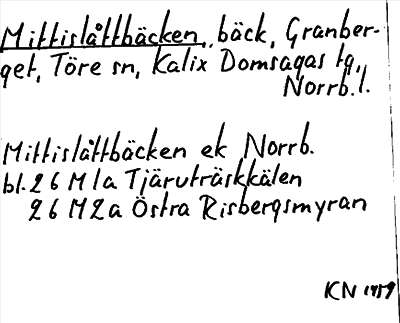 Mittislåttbäcken, bäck, Granber-
get, Töre sn, Kalix Domsagas tg,
Norrb.l.
Mittislåttbäcken ek Norrb.
bl. 26 M1a Tjäruträskkälen
26 M2a Östra Risbergsmyran
KN 1959